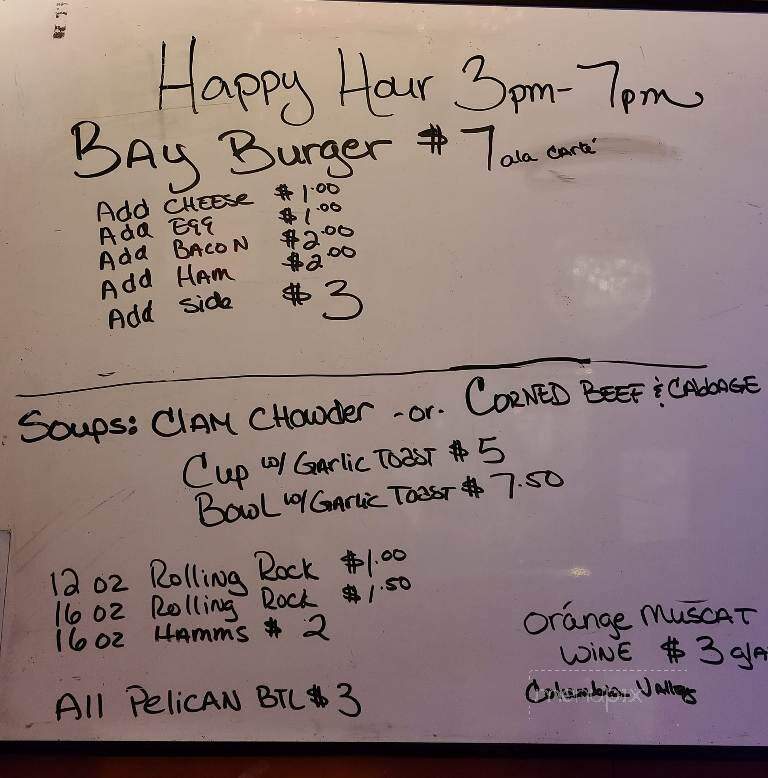 Happy Hour 3pm-7pm
BAY Burger $7 ala carté
Add CHEESE $1.00
Add Egg $1.00
Add BACON $2.00
Add HAM $2.00
Add side $3
Soups: CLAM CHowder -or- CORNED BEEF & CABBAGE
Cup w/ GARLIC TOAST $5
BowL w/ GARLIC TOAST $7.50
12 oz Rolling Rock $1.00
16 oz Rolling Rock $1.50
16 oz HAMMS $2
ORANGE MUSCAT
WINE $3
Columbia Valley
All PELICAN BTL $3